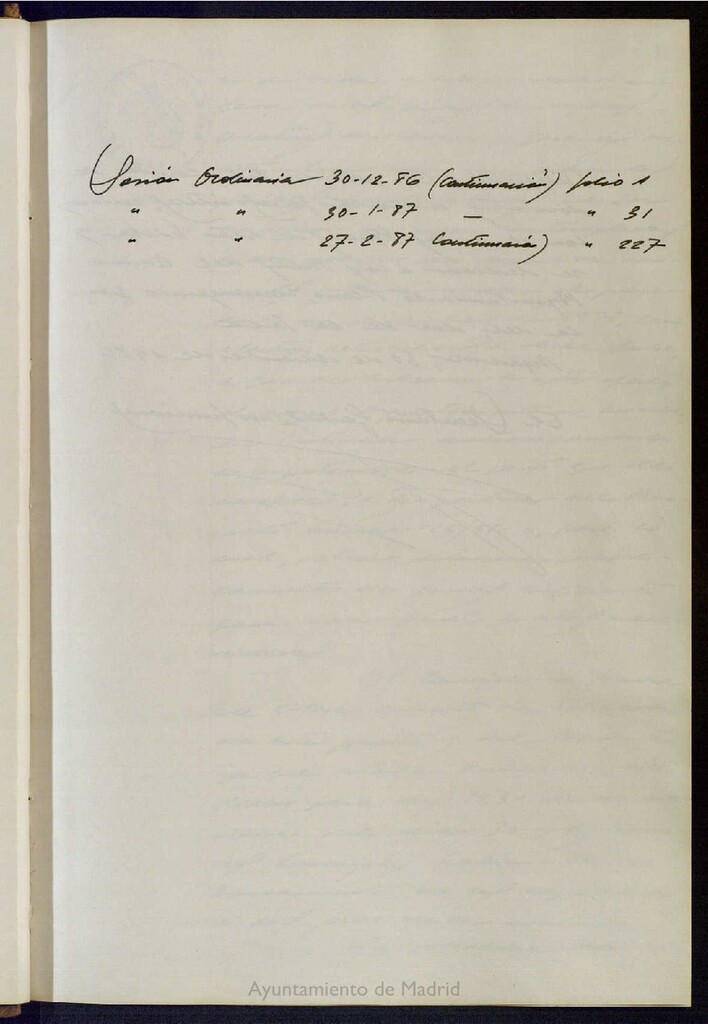 Sesión Ordinaria 30-12-86 (Continuación) folio 1
" " 30-1-87 — " 31
" " 27-2-87 Continuación) " 227
Ayuntamiento de Madrid